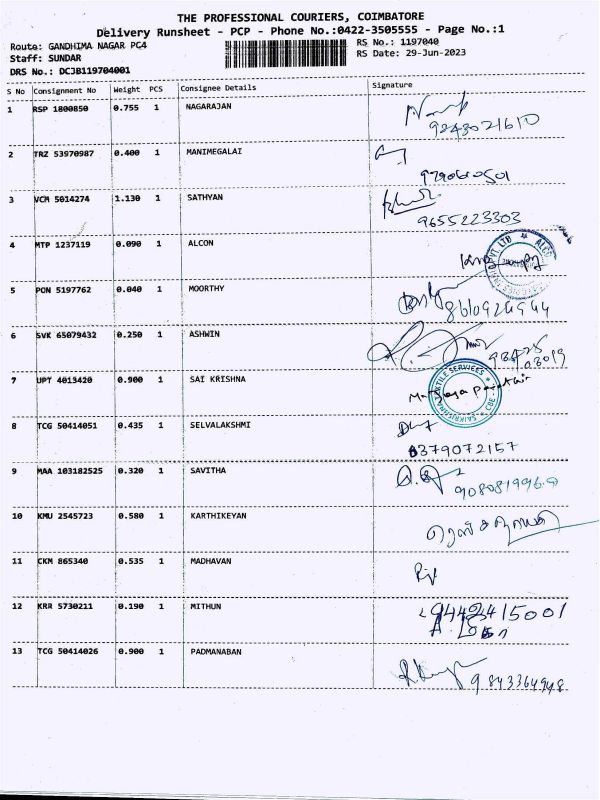 THE PROFESSIONAL COURIERS, COIMBATORE
Delivery Runsheet - PCP - Phone No.:0422-3505555 - Page No.:1
Route: GANDHIMA NAGAR PC4 RS No.: 1197040
Staff: SUNDAR RS Date: 29-Jun-2023
DRS No.: DCJB119704001
S No Consignment No Weight PCS Consignee Details Signature
1 RSP 1800850 0.755 1 NAGARAJAN
9243021610
2 TRZ 53970987 0.400 1 MANIMEGALAI
3 VCM 5014274 1.130 1 SATHYAN
9655223303
4 MTP 1237119 0.090 1 ALCON
5 PON 5197762 0.040 1 MOORTHY
6 SVK 65079432 0.250 1 ASHWIN
98425
03019
7 UPT 4013420 0.900 1 SAI KRISHNA
8 TCG 50414051 0.435 1 SELVALAKSHMI
8379072157
9 MAA 103182525 0.320 1 SAVITHA
10 KMU 2545723 0.580 1 KARTHIKEYAN
11 CKM 865340 0.535 1 MADHAVAN
12 KRR 5730211 0.190 1 MITHUN
9442415001
13 TCG 50414026 0.900 1 PADMANABAN
9843364948